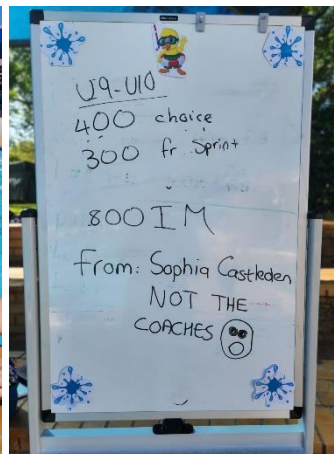 U9-U10
400 choice
300 fr Sprint
800 IM
From: Sophia Castleden
NOT THE
COACHES